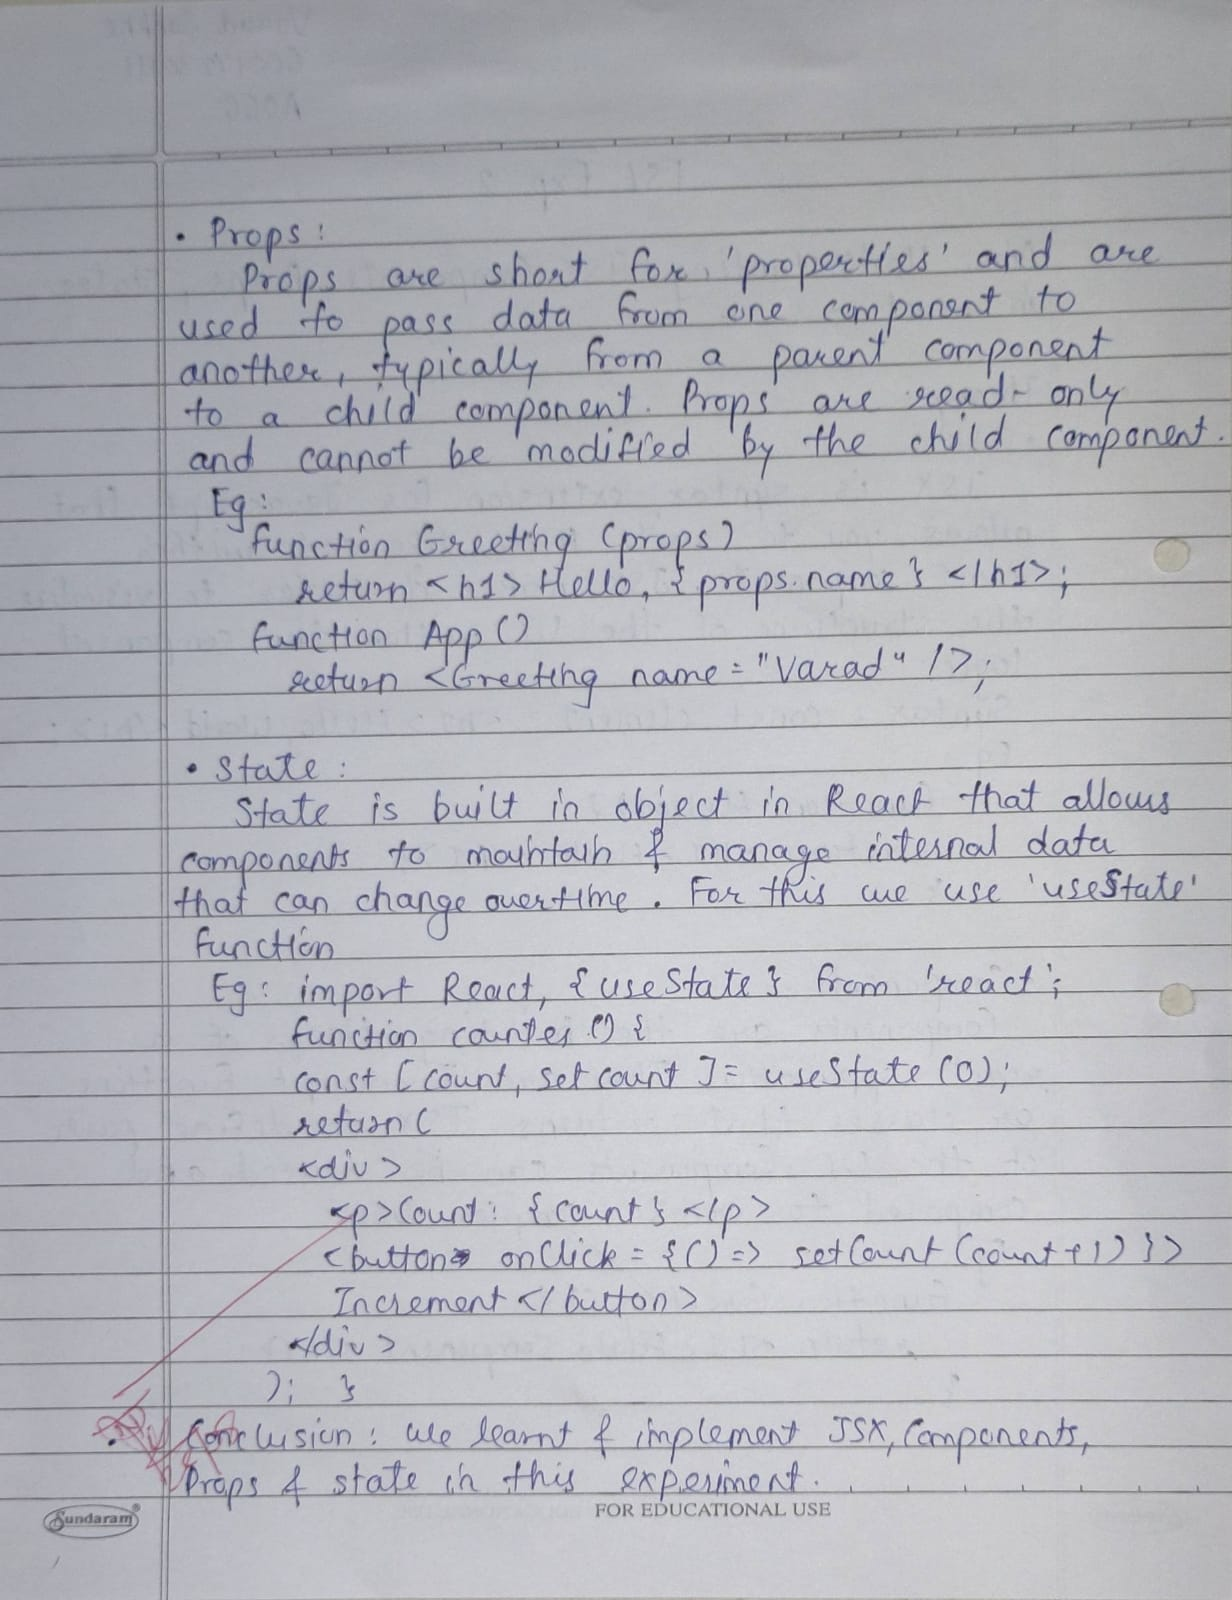 • Props :
Props are short for 'properties' and are
used to pass data from one component to
another, typically from a parent component
to a child component. Props are read-only
and cannot be modified by the child component.
Eg :
function Greeting (props)
return <h1> Hello, {props.name} </h1>;
function App ()
return <Greeting name = "Varad" />;
• State :
State is built in object in React that allows
components to maintain & manage internal data
that can change overtime. For this we use 'useState'
function
Eg : import React, {useState} from 'react';
function counter () {
const [count, set count] = useState (0);
return (
<div>
<p>Count : {count} </p>
<button onClick = {() => setCount (count+1)}>
Increment </button>
</div>
); }
• Conclusion : We learnt & implement JSX, Components,
Props & state in this experiment.
Sundaram®
FOR EDUCATIONAL USE